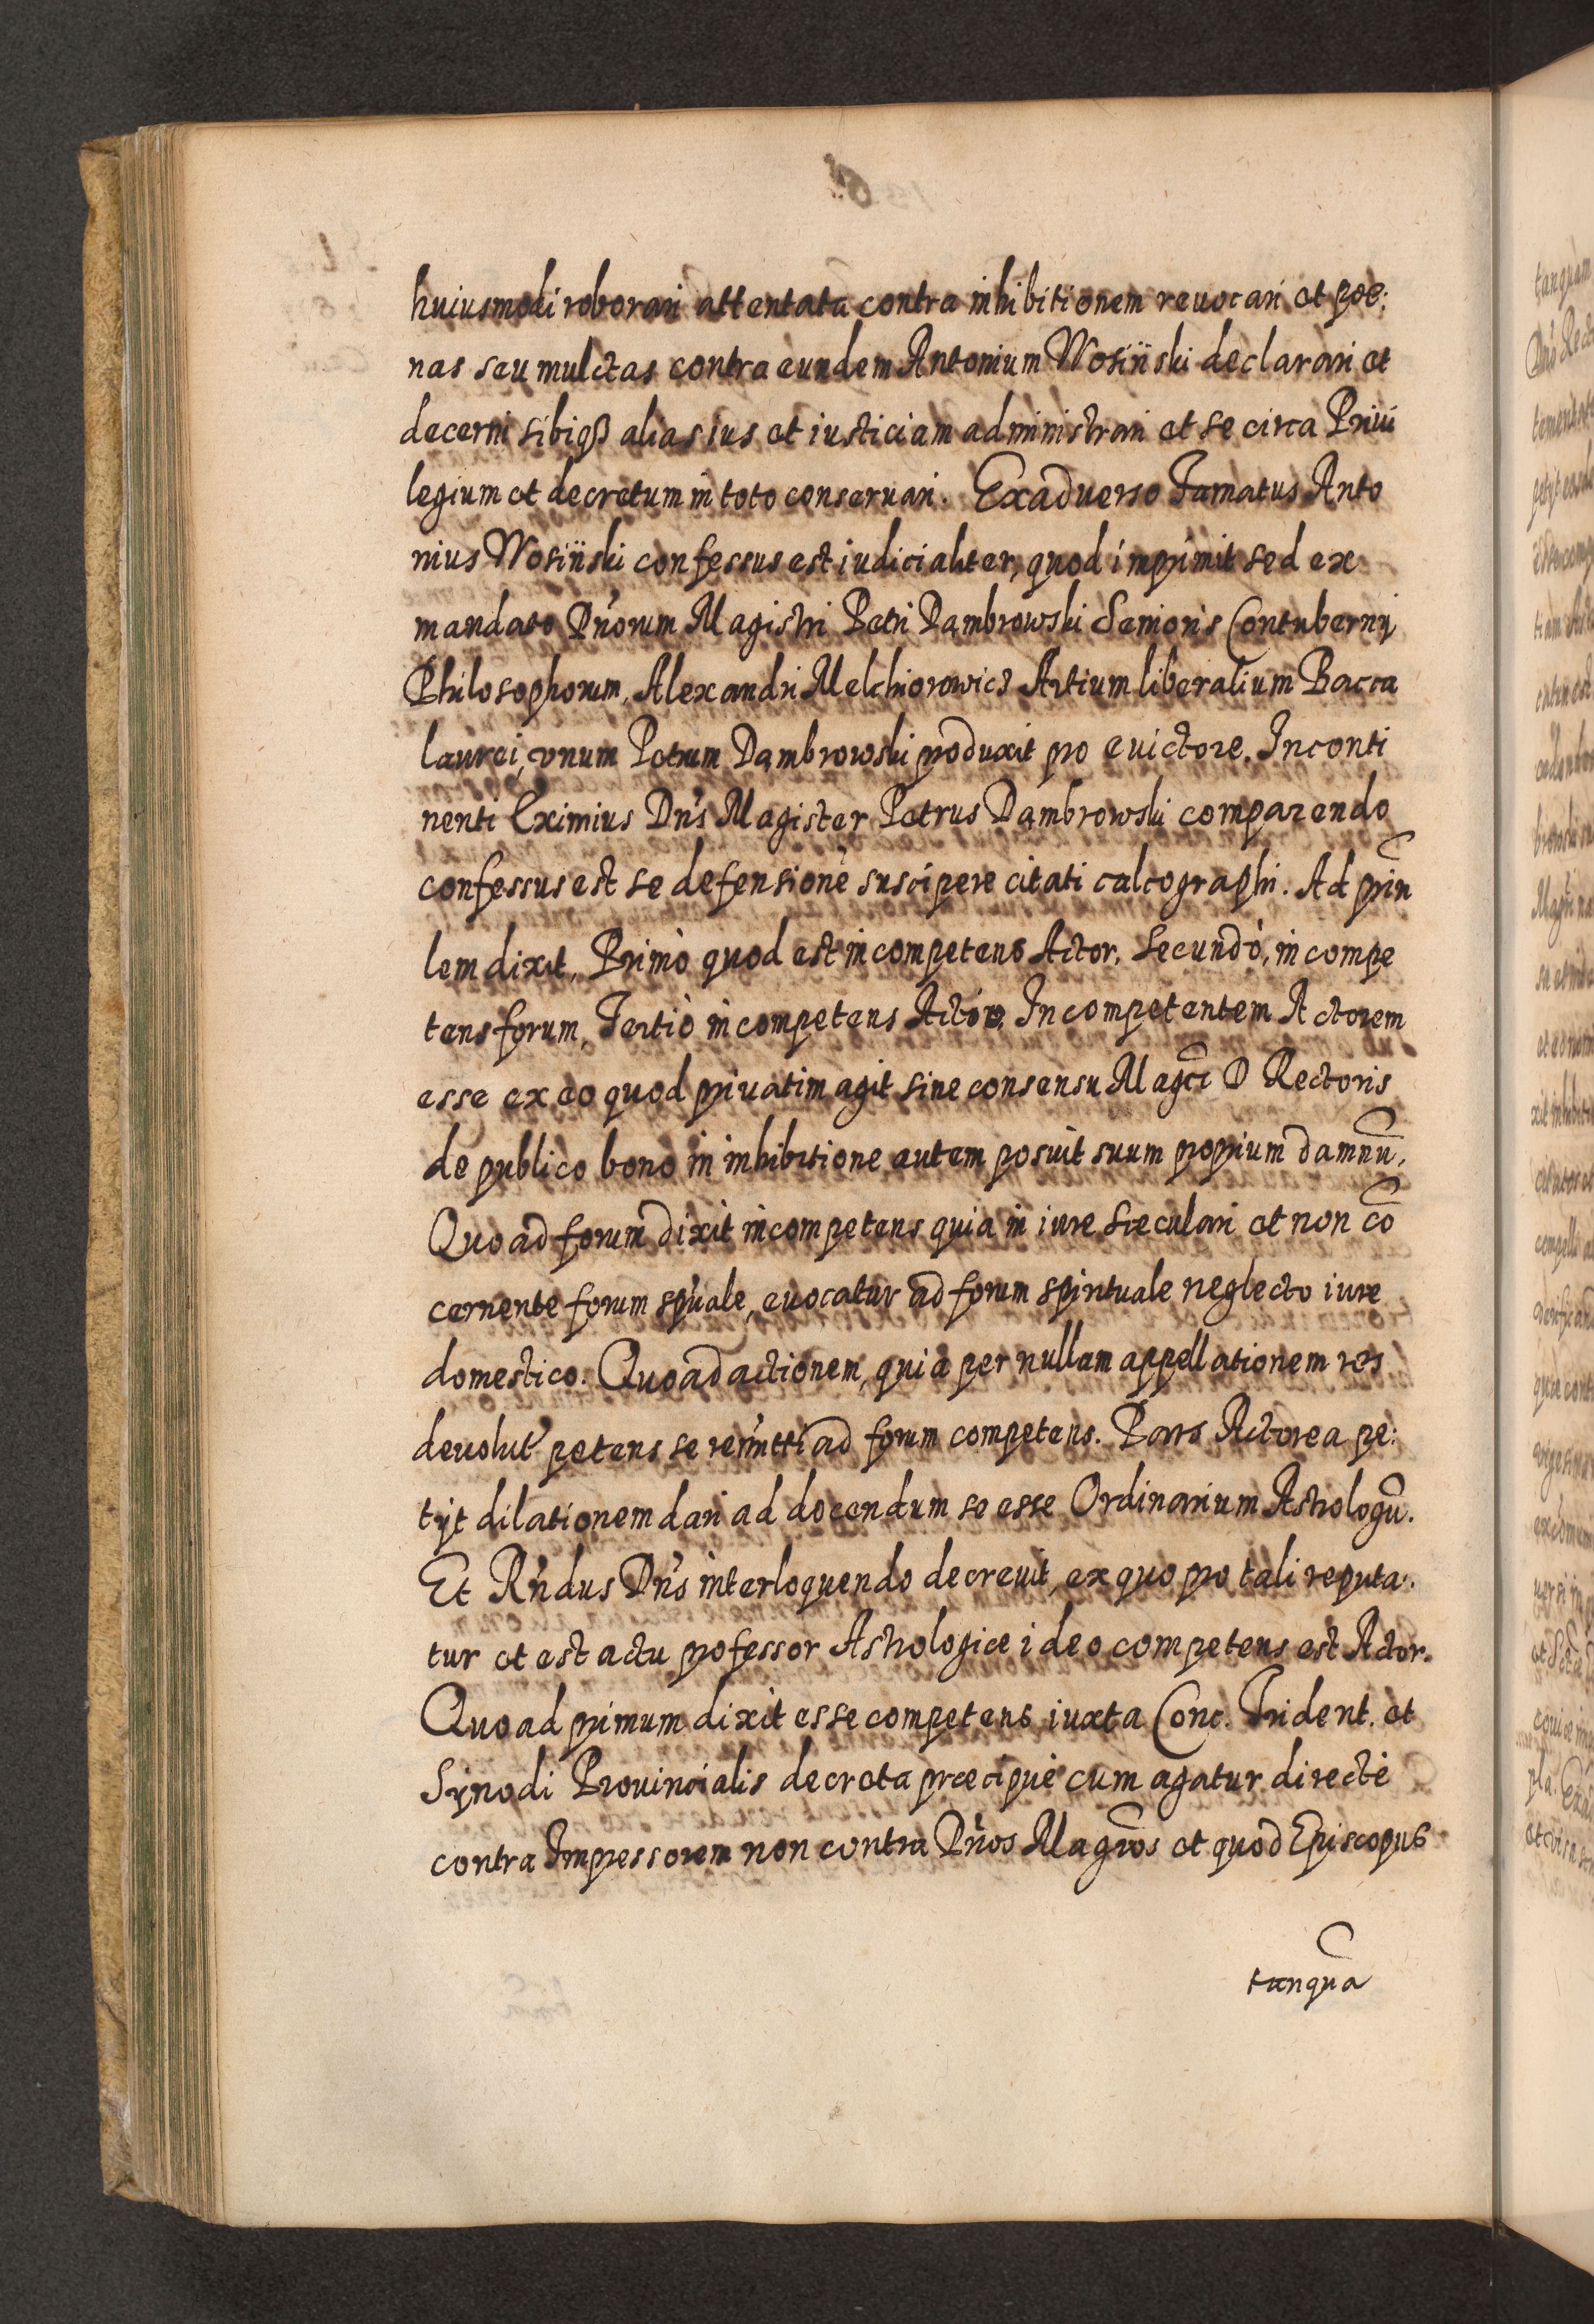 huiusmodi roborari attentata contra inhibitionem reuocari et poe:
nas seu mulctas contra eundem Antonium Wosiński declarari et
decerni sibiqꝫ alias ius et iusticiam administrari et se circa Priui
legium et decretum in toto conseruari. Exaduerso Famatus Anto
nius Wosiński confessus est iudicialiter, quod imprimit sed ex
mandato Dn̄orum Magistri Petri Dambrowski Senioris Contubernij
Philosophorum, Alexandri Melchiorowicz Artium liberalium Bacca
laurei, vnum Petrum Dambrowski produxit pro euictore. Inconti
nenti Eximius Dn̄s Magister Petrus Dambrowski comparendo
confessus est se defensionē suscipere citati calcographi. Ad prin̄
lem dixit, Primò quod est incompetens Actor, Secundò, incompe
tens forum, Tertiò incompetens Actio. Incompetentem Actorem
esse ex eo quod priuatim agit sine consensu Magc̄i D Rectoris
de publico bono in inhibitione autem posuit suum proprium damnū,
Quo ad forum dixit incompetens quia in iure sæculari et non cō
cernente forum sp̄uale, euocatur ad forum spirituale neglecto iure
domestico. Quoad actionem, quia per nullam appellationem res
deuolut petens se remitti ad forum competens. Pars Actorea pe:
tijt dilationem dari ad docendum se esse Ordinarium Astrologū.
Et Rn̄dus Dn̄s interloquendo decreuit, ex quo pro tali reputa:
tur et est actu professor Astrologiæ ideo competens est Actor.
Quo ad primum dixit esse competens iuxta Conc. Trident. et
Synodi Prouincialis decreta præcipuè cum agatur directè
contra Impressorem non contra Dn̄os Magr̄os et quod Episcopus
tanquā